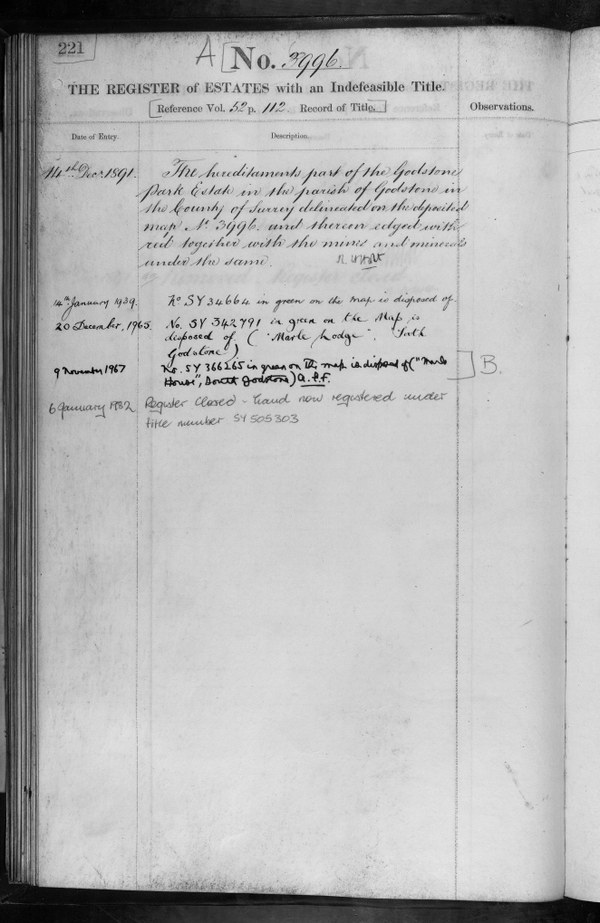 221
A No. 3996.
THE REGISTER of ESTATES with an Indefeasible Title.
Reference Vol. 52 p. 112. Record of Title.
Observations.
Date of Entry.
Description.
14th. Decr. 1891.
The hereditaments part of the Godstone
Park Estate in the parish of Godstone in
the County of Surrey delineated on the deposited
map No. 3996. and therein edged with
red together with the mines and minerals
under the same.
14th January 1939.
No SY 34664 in green on the map is disposed of.
20 December, 1965.
No. SY 342791 in green on the Map is
disposed of ("Marle Lodge", Sth
Godstone)
9 November 1967
No. SY 366265 in green on the map is disposed of ("Marle
House", South Godstone) A.P.F.
B.
6 January 1982
Register closed - Land now registered under
title number SY 505303